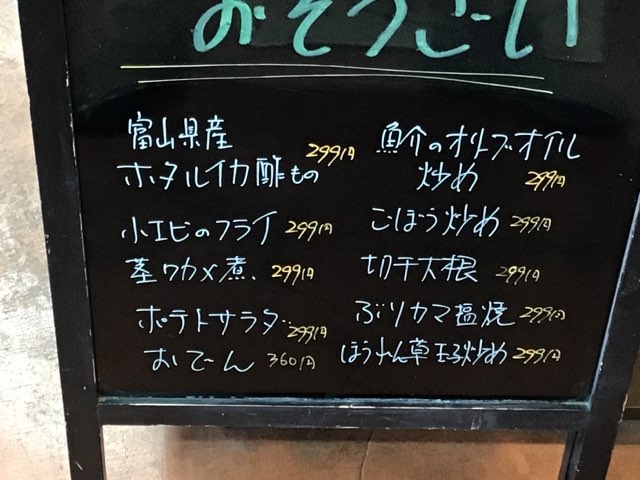 おそうざい
富山県産
ホタルイカ酢もの 299円
小エビのフライ 299円
茎ワカメ煮 299円
ポテトサラダ 299円
おでん 360円
魚介のオリーブオイル
炒め 299円
ごぼう炒め 299円
切干大根 299円
ぶりカマ塩焼 299円
ほうれん草玉子炒め 299円